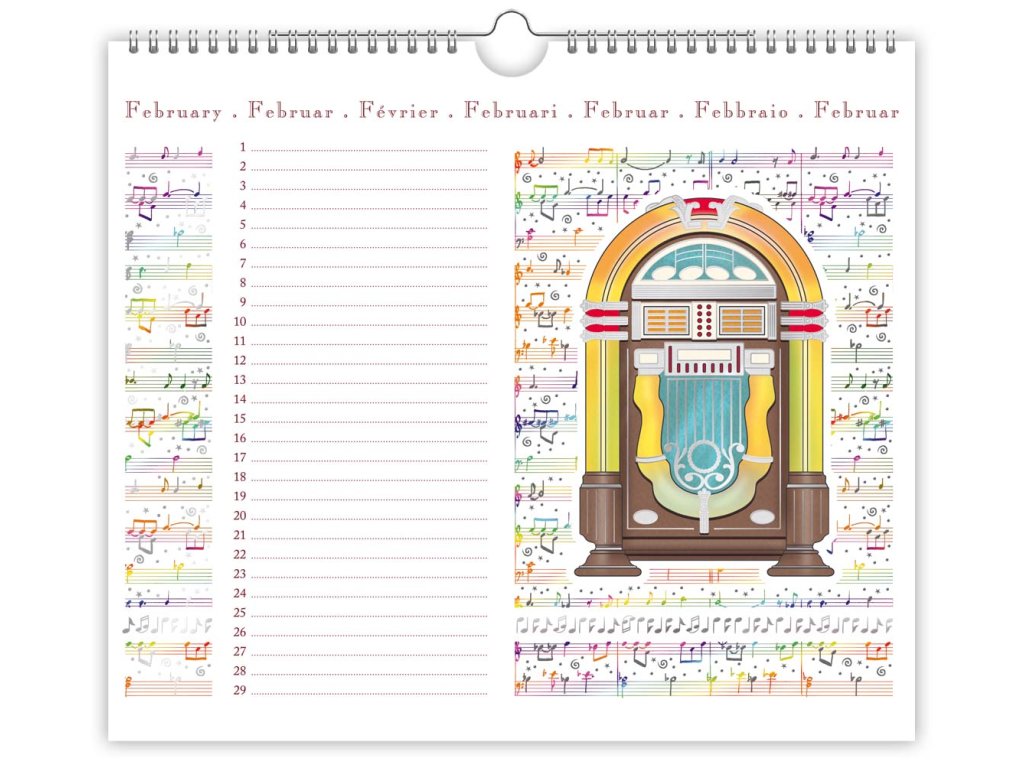 February . Februar . Février . Februari . Februar . Febbraio . Februar
1
2
3
4
5
6
7
8
9
10
11
12
13
14
15
16
17
18
19
20
21
22
23
24
25
26
27
28
29